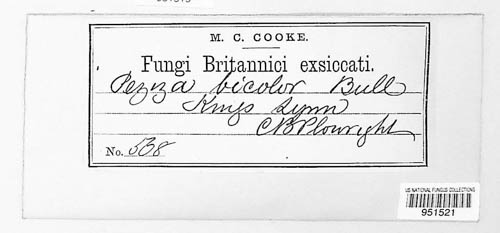 M. C. COOKE.
Fungi Britannici exsiccati.
Peziza bicolor Bull
Kings Lynn
C B Plowright
No. 538
US NATIONAL FUNGUS COLLECTIONS
951521